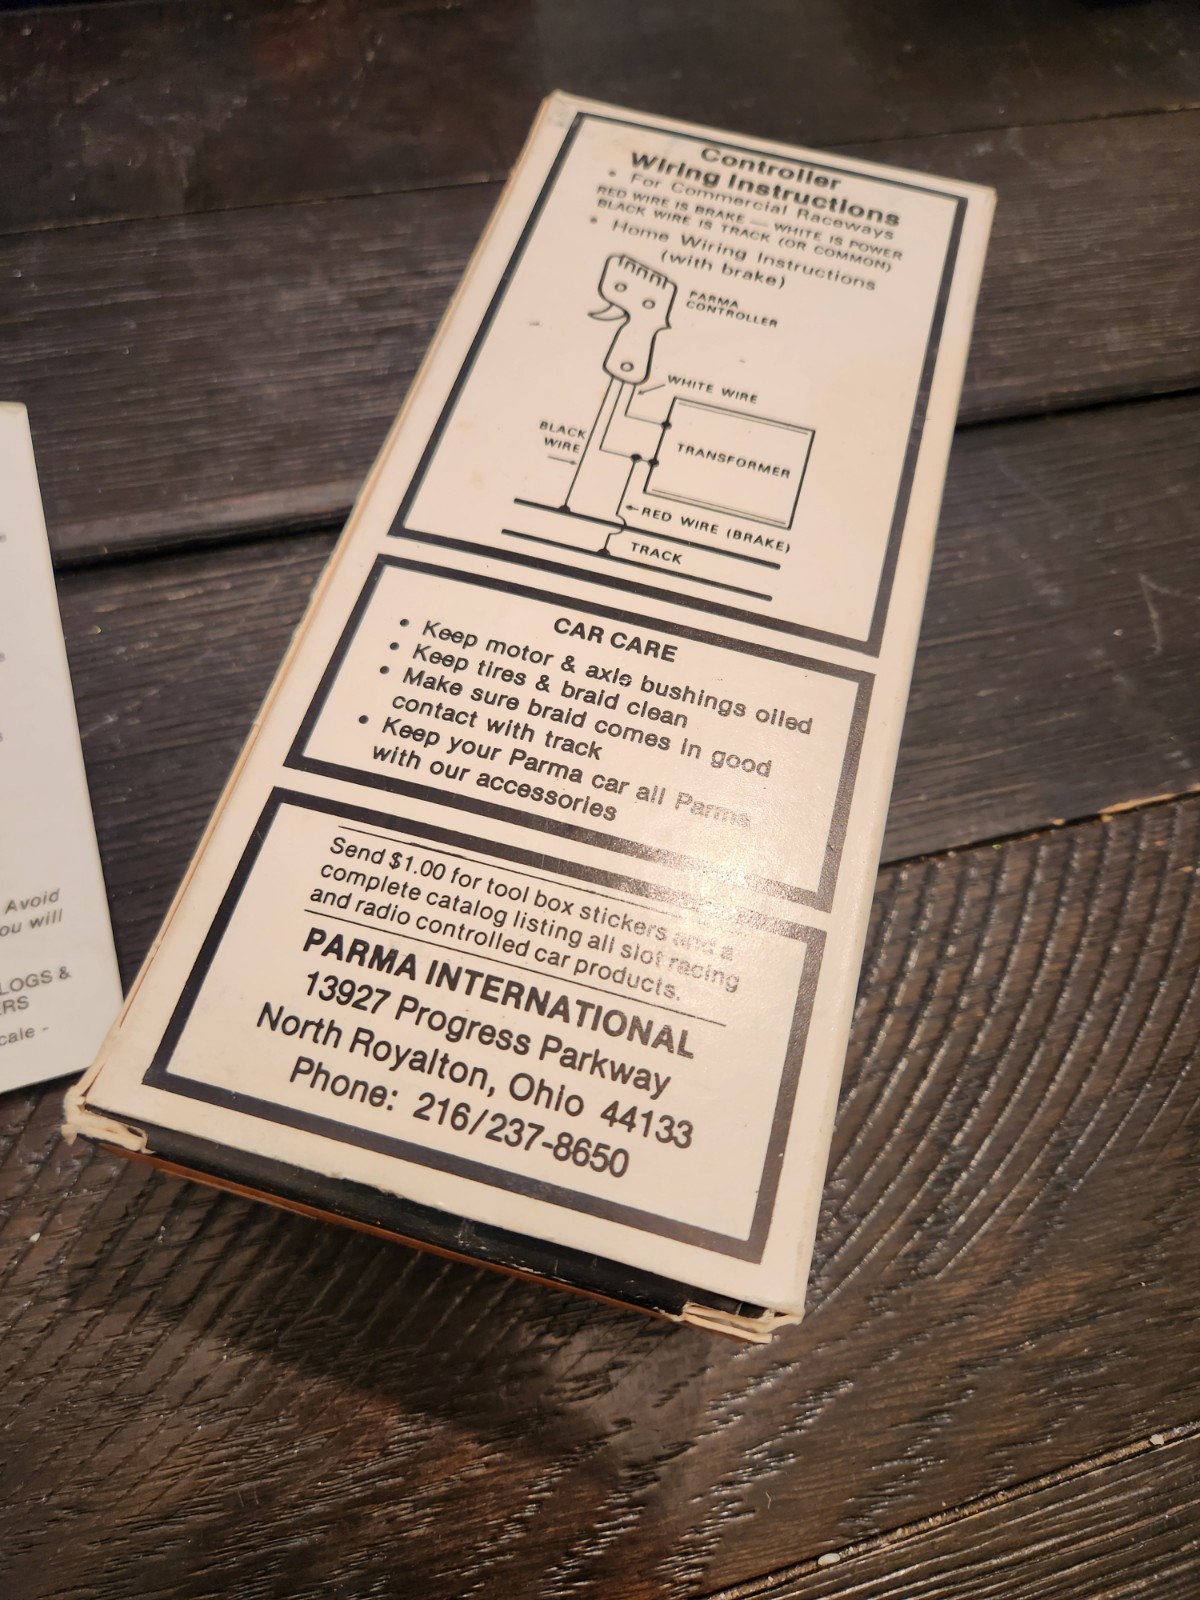 Controller
Wiring Instructions
• For Commercial Raceways
RED WIRE IS BRAKE — WHITE IS POWER
BLACK WIRE IS TRACK (OR COMMON)
• Home Wiring Instructions
(with brake)
PARMA
CONTROLLER
WHITE WIRE
BLACK
WIRE
TRANSFORMER
RED WIRE (BRAKE)
TRACK
CAR CARE
• Keep motor & axle bushings oiled
• Keep tires & braid clean
• Make sure braid comes in good
contact with track
• Keep your Parma car all Parma
with our accessories
Send $1.00 for tool box stickers and a
complete catalog listing all slot racing
and radio controlled car products.
PARMA INTERNATIONAL
13927 Progress Parkway
North Royalton, Ohio 44133
Phone: 216/237-8650
Avoid
ou will
LOGS &
ERS
cale -